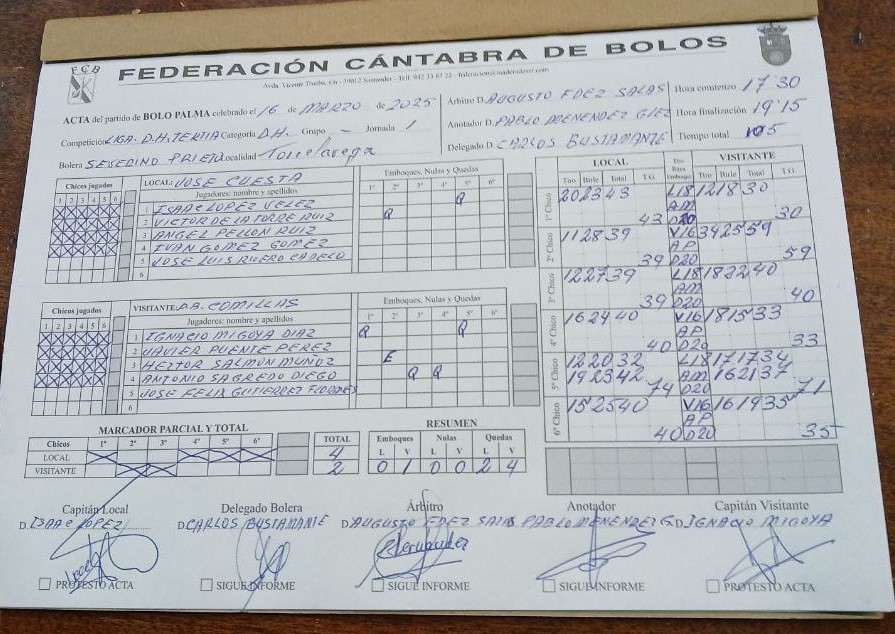 FCB
FEDERACIÓN CÁNTABRA DE BOLOS
Avda. Vicente Trueba, s/n - 39012 Santander - Telf. 942 33 81 22 - federacion@maderadeser.com
ACTA del partido de BOLO PALMA celebrado el 16 de MARZO de 2025
Competición LIGA. D.H. TERTIA Categoría D.H. Grupo - Jornada 1
Bolera SEVERINO PRIETO Localidad Torrelavega
Árbitro D. AUGUSTO FDEZ SALAS
Anotador D. PABLO MENENDEZ GLEZ
Delegado D. CARLOS BUSTAMANTE
Hora comienzo 17'30
Hora finalización 19'15
Tiempo total 105
Chicos jugados
1 2 3 4 5 6
LOCAL: JOSE CUESTA
Jugadores: nombre y apellidos
Emboques, Nulas y Quedas
1º 2º 3º 4º 5º 6º
1 ISAAC LOPEZ VELEZ Q
2 VICTOR DE LA TORRE RUIZ Q
3 ANGEL PELLON RUIZ
4 IVAN GOMEZ GOMEZ
5 JOSE LUIS RIVERO CADELO
6
Chicos jugados
1 2 3 4 5 6
VISITANTE: P.B. COMILLAS
Jugadores: nombre y apellidos
Emboques, Nulas y Quedas
1º 2º 3º 4º 5º 6º
1 IGNACIO MIGOYA DIAZ Q Q
2 JAVIER PUENTE PEREZ
3 HECTOR SALMÓN MUÑOZ E
4 ANTONIO SAGREDO DIEGO Q Q
5 JOSE FELIX GUTIERREZ
6
LOCAL VISITANTE
Tiro Birle Total T.G. Tiro Raya Emboque Tiro Birle Total T.G.
1º Chico 20 23 43 L18 12 18 30
AM
43 D20 30
2º Chico 11 28 39 V16 34 25 59
AP
39 D20 59
3º Chico 12 27 39 L18 18 22 40
AM
39 D20 40
4º Chico 16 24 40 V16 18 15 33
AP
40 D20 33
5º Chico 12 20 32 L18 17 17 34
19 23 42 AM 16 21 37
74 D20 71
6º Chico 15 25 40 V16 16 19 35
AP
40 D20 35
MARCADOR PARCIAL Y TOTAL
Chicos 1º 2º 3º 4º 5º 6º TOTAL
LOCAL 4
VISITANTE 2
RESUMEN
Emboques Nulas Quedas
L V L V L V
0 1 0 0 2 4
Capitán Local Delegado Bolera Árbitro Anotador Capitán Visitante
D. ISAAC LOPEZ D. CARLOS BUSTAMANTE D. AUGUSTO FDEZ PABLO MENENDEZ G. D. IGNACIO MIGOYA
PROTESTO ACTA SIGUE INFORME SIGUE INFORME SIGUE INFORME PROTESTO ACTA